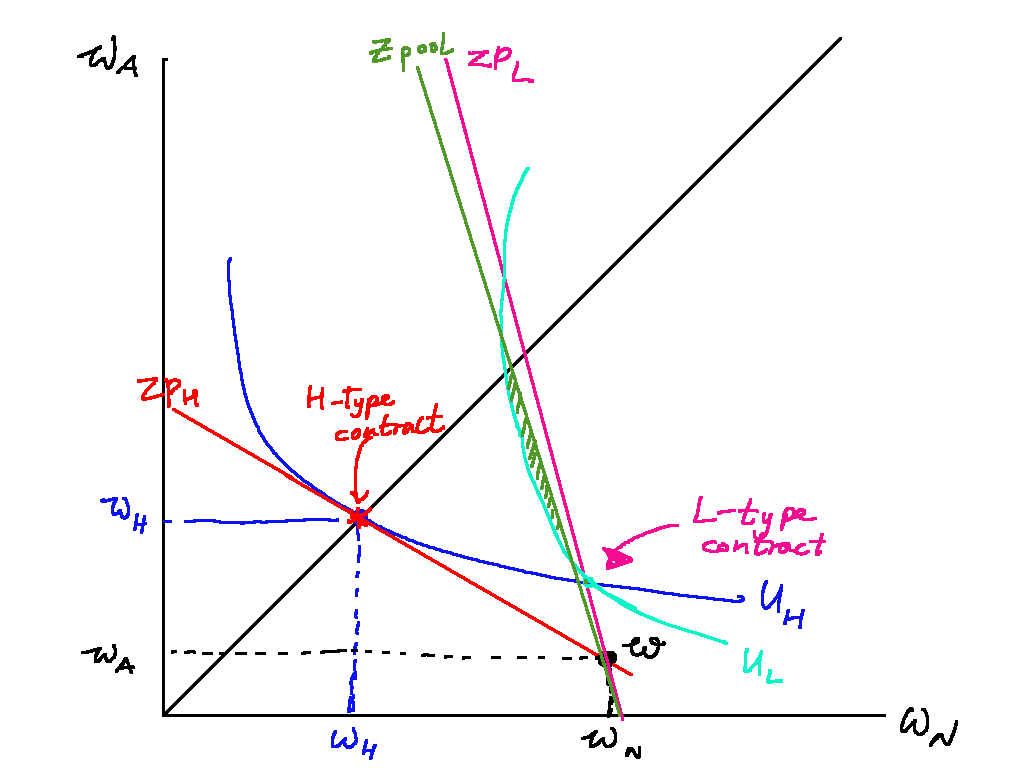 Zpool
ZPL
WA
ZPH
H-type
contract
WH
L-type
contract
UH
WA
W
UL
WH
WN
WN